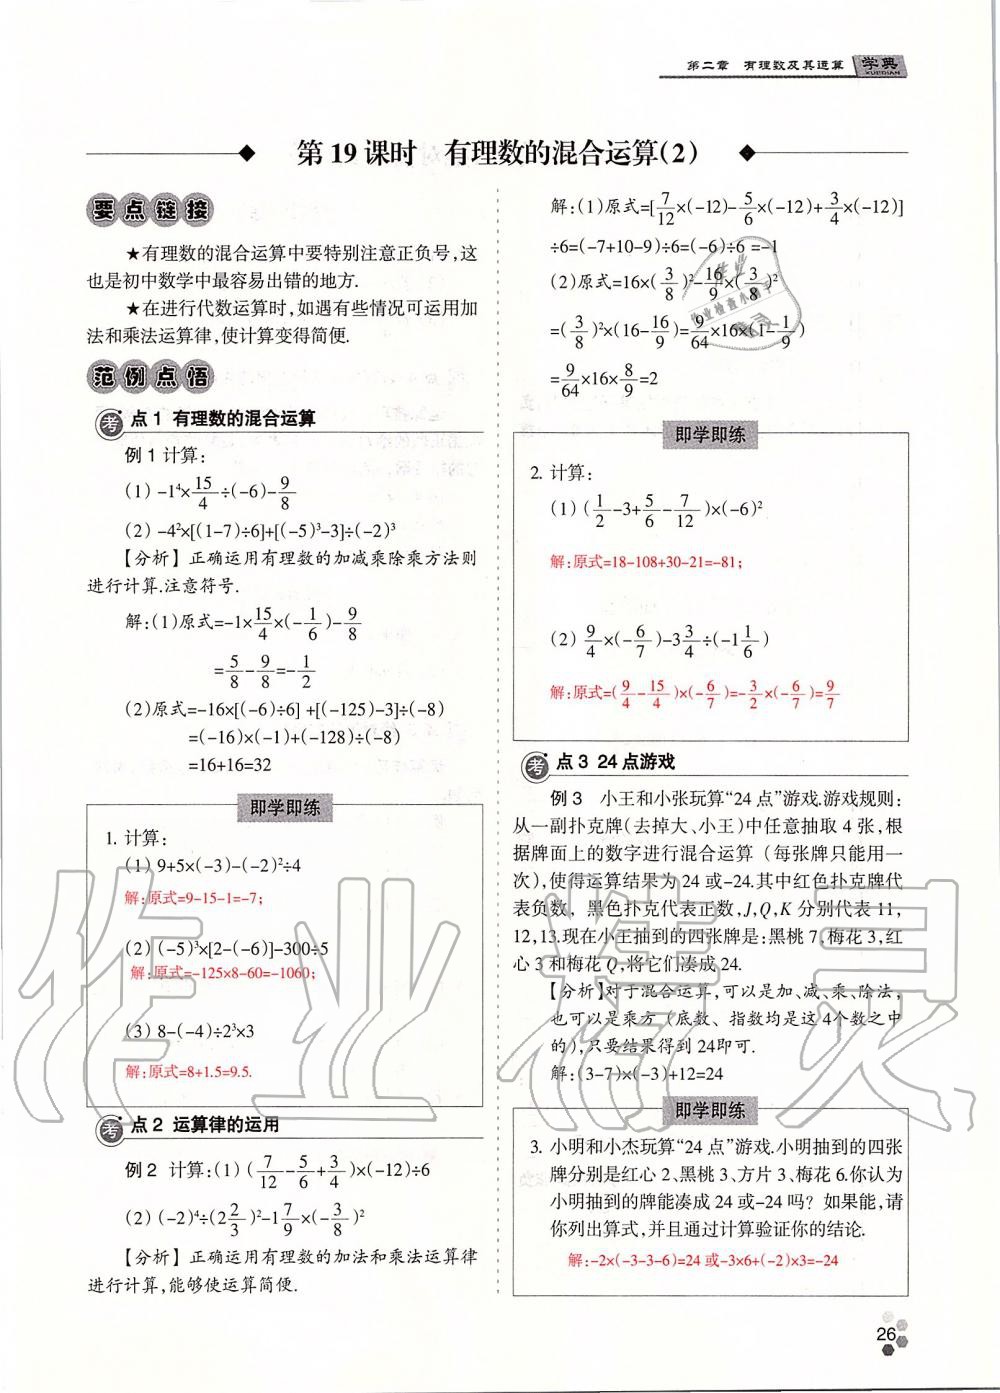 第二章 有理数及其运算 学典
XUEDIAN
第19课时 有理数的混合运算(2)
要点链接
★有理数的混合运算中要特别注意正负号,这
也是初中数学中最容易出错的地方.
★在进行代数运算时,如遇有些情况可运用加
法和乘法运算律,使计算变得简便.
范例点悟
考点1 有理数的混合运算
例1计算:
(1) -1⁴×15/4÷(-6)-9/8
(2) -4²×[(1-7)÷6]+[(-5)³-3]÷(-2)³
【分析】正确运用有理数的加减乘除乘方法则
进行计算.注意符号.
解:(1)原式=-1×15/4×(-1/6)-9/8
=5/8-9/8=-1/2
(2)原式=-16×[(-6)÷6] +[(-125)-3]÷(-8)
=(-16)×(-1)+(-128)÷(-8)
=16+16=32
即学即练
1. 计算:
(1) 9+5×(-3)-(-2)²÷4
解:原式=9-15-1=-7;
(2) (-5)³×[2-(-6)]-300÷5
解:原式=-125×8-60=-1060;
(3) 8-(-4)÷2³×3
解:原式=8+1.5=9.5.
考点2 运算律的运用
例2 计算:(1) (7/12-5/6+3/4)×(-12)÷6
(2) (-2)⁴÷(2 2/3)²-1 7/9×(-3/8)²
【分析】正确运用有理数的加法和乘法运算律
进行计算,能够使运算简便.
解:(1)原式=[7/12×(-12)-5/6×(-12)+3/4×(-12)]
÷6=(-7+10-9)÷6=(-6)÷6 =-1
(2)原式=16×(3/8)²-16/9×(3/8)²
=(3/8)²×(16-16/9)=9/64×16×(1-1/9)
=9/64×16×8/9=2
即学即练
2. 计算:
(1) (1/2-3+5/6-7/12)×(-6)²
解:原式=18-108+30-21=-81;
(2) 9/4×(-6/7)-3 3/4÷(-1 1/6)
解:原式=(9/4-15/4)×(-6/7)=-3/2×(-6/7)=9/7
考点3 24点游戏
例3 小王和小张玩算“24点”游戏.游戏规则:
从一副扑克牌(去掉大、小王)中任意抽取4张,根
据牌面上的数字进行混合运算(每张牌只能用一
次),使得运算结果为24或-24.其中红色扑克牌代
表负数,黑色扑克代表正数,J,Q,K分别代表11,
12,13.现在小王抽到的四张牌是:黑桃7,梅花3,红
心3和梅花Q,将它们凑成24.
【分析】对于混合运算,可以是加、减、乘、除法,
也可以是乘方(底数、指数均是这4个数之中
的),只要结果得到24即可.
解:(3-7)×(-3)+12=24
即学即练
3. 小明和小杰玩算“24点”游戏.小明抽到的四张
牌分别是红心2、黑桃3、方片3、梅花6.你认为
小明抽到的牌能凑成24或-24吗?如果能,请
你列出算式,并且通过计算验证你的结论.
解:-2×(-3-3-6)=24或-3×6+(-2)×3=-24
26
作业精灵